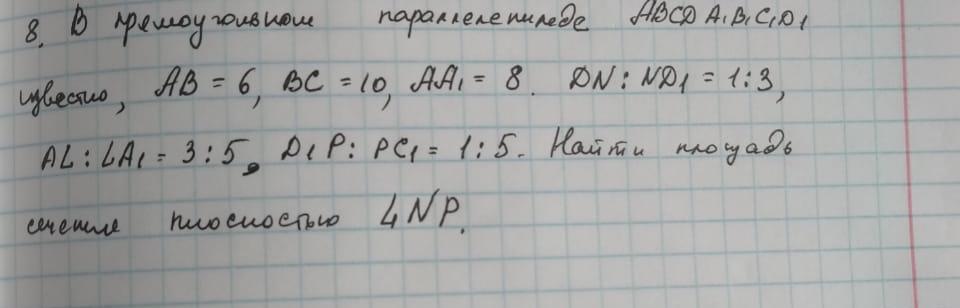 8. В прямоугольном параллелепипеде ABCD A₁B₁C₁D₁
известно, AB = 6, BC = 10, AA₁ = 8. DN : ND₁ = 1:3,
AL : LA₁ = 3:5, D₁P : PC₁ = 1:5. Найти площадь
сечение плоскостью LNP.